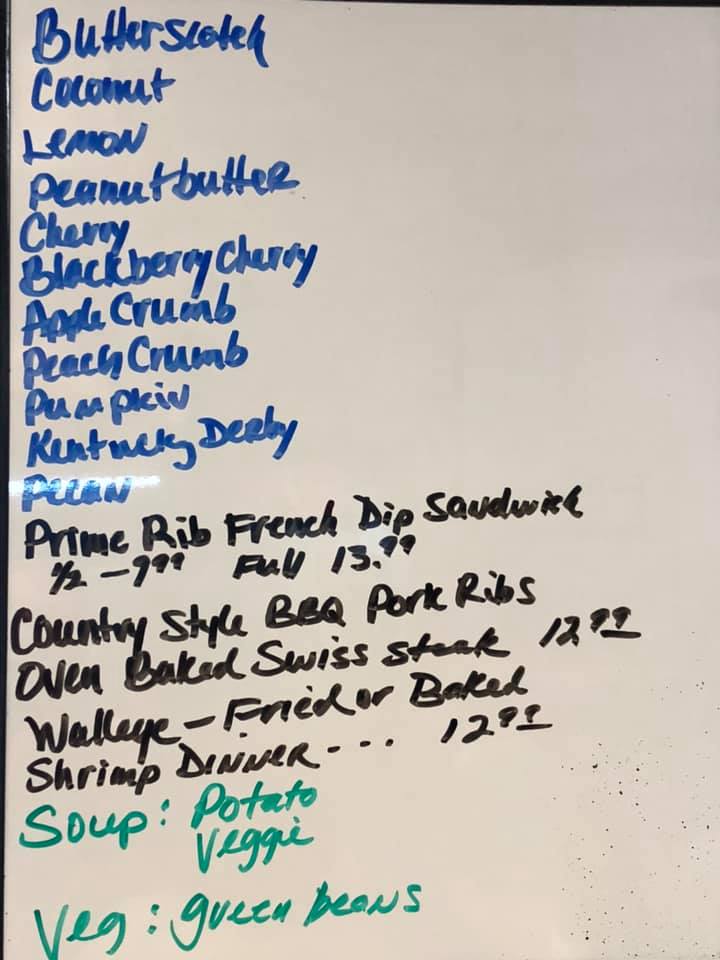 Butterscotch
Coconut
Lemon
Peanutbutter
Cherry
Blackberry Cherry
Apple Crumb
Peach Crumb
Pumpkin
Kentucky Derby
Pecan
Prime Rib French Dip Sandwich
1/2 - 9.99 Full 13.99
Country Style BBQ Pork Ribs
Oven Baked Swiss Steak 12.99
Walleye - Fried or Baked
Shrimp Dinner - - - 12.99
Soup: Potato
Veggie
Veg: green beans